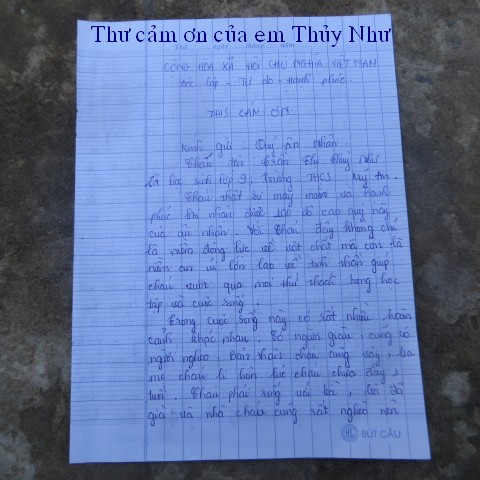 Thư cảm ơn của em Thủy Như
Thứ ngày tháng năm
CỘNG HÒA XÃ HỘI CHỦ NGHĨA VIỆT NAM
Độc lập - Tự do - Hạnh phúc
THƯ CẢM ƠN
Kính gửi: Quý Ân Nhân.
Cháu tên: Trần Thị Thủy Như
Là học sinh lớp 9, Trường THCS Mỹ An.
Cháu thật sự may mắn và hạnh
phúc khi nhận được sự đỡ cao quý này
của ân nhân. Với cháu đây không chỉ
là niềm động lực về vật chất mà còn là
niềm an ủi lớn lao về tinh thần giúp
cháu vượt qua mọi thử thách trong học
tập và cuộc sống.
Trong cuộc sống này có rất nhiều hoàn
cảnh khác nhau. Có người giàu, cũng có
người nghèo. Bản thân cháu cũng vậy, ba
mẹ cháu li hôn lúc cháu chưa đầy 1
tuổi. Cháu phải sống với bà, bà đã
già và nhà cháu cũng rất nghèo nên
HL BÚT CẦU